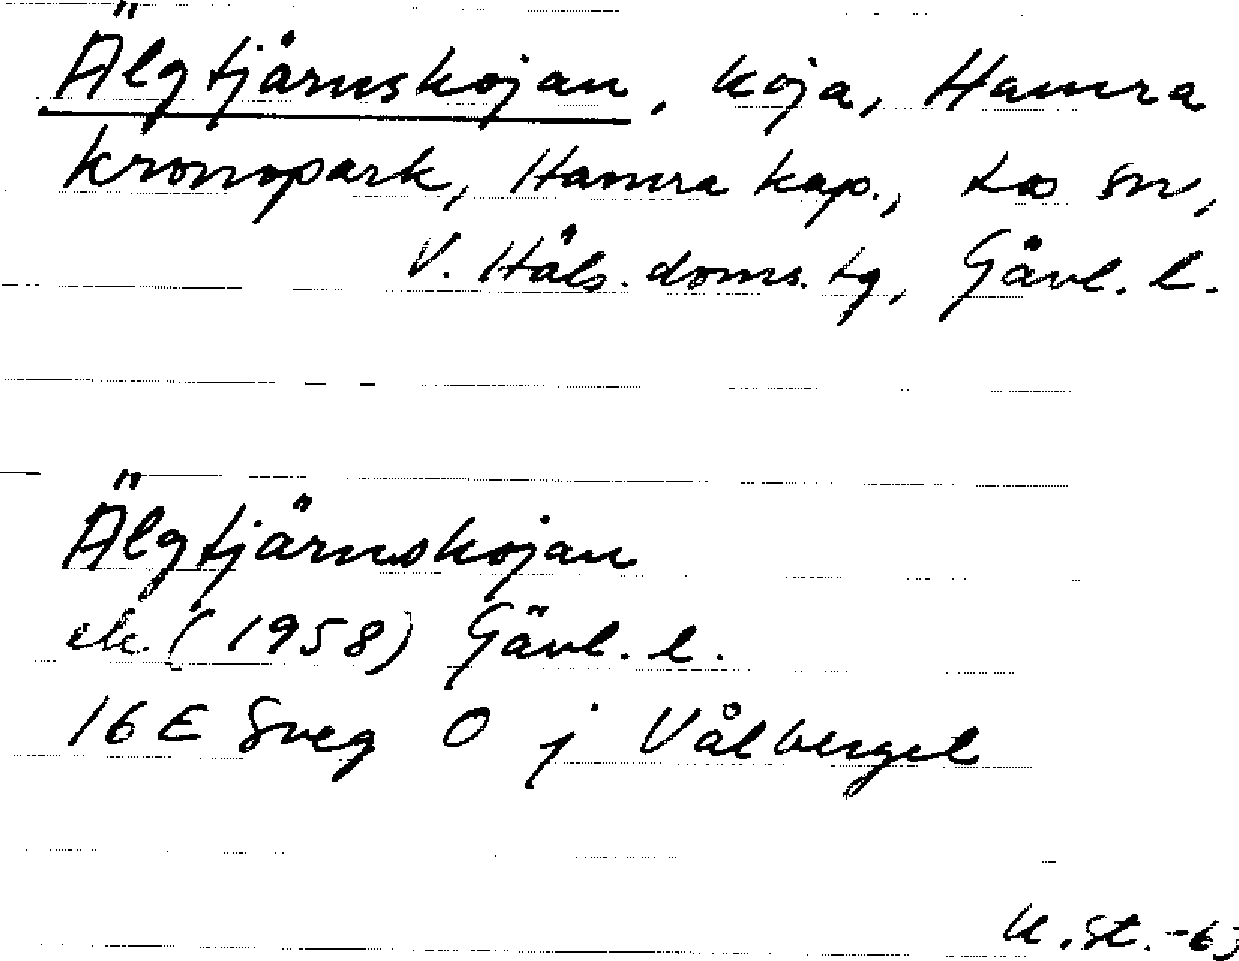 Älgtjärnskojan, koja, Hamra
kronopark, Hamra kap., Los sn,
V. Häls. doms. tg, Gävl. l.
Älgtjärnskojan
ek. (1958) Gävl. l.
16 E Sveg O j Vålberget
U. St. -63